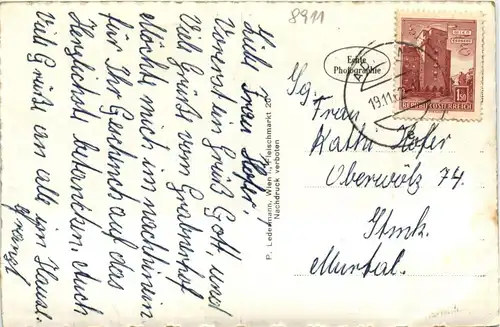 8911
Liebe Frau Hofer!
Vorerst ein Grüß Gott, und
Viel Grüße vom Grabenhof
Möchte mich im nachhinein
für Ihr Geschenk auf das
Herzlichste bedanken. Auch
Viele Grüße an alle im Hause
P. Ledermann, Wien I., Fleischmarkt 20
Nachdruck verboten
Echte
Photographie
19.11.62
1.50
REPUBLIK ÖSTERREICH
Sg.
Frau
Kathi Hofer
Oberwölz 74.
Stmk.
Murtal.